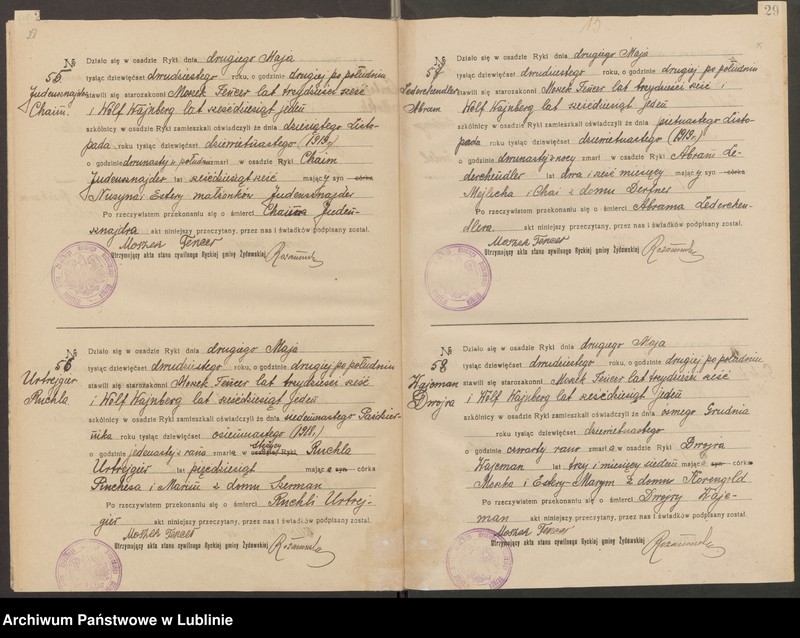 29
№ 55
Judensznajder
Chaim.
Działo się w osadzie Ryki dnia drugiego Maja
tysiąc dziewięćset dwudziestego roku, o godzinie drugiej po południu
stawili się starozakonni Moszek Fencer lat trzydzieści sześć
i Wolf Wajnberg lat sześćdziesiąt jeden
szkólnicy w osadzie Ryki zamieszkali oświadczyli że dnia dziesiątego Listo-
pada roku tysiąc dziewięćset dziewiętnastego (1919 r.)
o godzinie dwunastej z południa zmarł w osadzie Ryki Chaim
Judensznajder lat sześćdziesiąt sześć mający syn córka
Nusyna i Estery małżonków Judensznajder
Po rzeczywistem przekonaniu się o śmierci Chaima Juden-
sznajdra akt niniejszy przeczytany, przez nas i świadków podpisany został.
Moszek Fencer
Utrzymujący akta stanu cywilnego Ryckiej gminy Żydowskiej
№ 56
Urtrejgier
Ruchla
Działo się w osadzie Ryki dnia drugiego Maja
tysiąc dziewięćset dwudziestego roku, o godzinie drugiej po południu
stawili się starozakonni Moszek Fencer lat trzydzieści sześć
i Wolf Wajnberg lat sześćdziesiąt jeden
szkólnicy w osadzie Ryki zamieszkali oświadczyli że dnia siedemnastego Paździer-
nika roku tysiąc dziewięćset osiemnastego (1918.)
o godzinie jedenastej z rana zmarła w osadzie Ryki Ruchla
Urtrejgier lat pięćdziesiąt mająca syn córka
Ruchesa i Mariem z domu Szerman
Po rzeczywistem przekonaniu się o śmierci Ruchli Urtrej-
gier akt niniejszy przeczytany, przez nas i świadków podpisany został.
Moszek Fencer
Utrzymujący akta stanu cywilnego Ryckiej gminy Żydowskiej
№ 57
Lederchendler
Abram
Działo się w osadzie Ryki dnia drugiego Maja
tysiąc dziewięćset dwudziestego roku, o godzinie drugiej po południu
stawili się starozakonni Moszek Fencer lat trzydzieści sześć i
Wolf Wajnberg lat sześćdziesiąt jeden
szkólnicy w osadzie Ryki zamieszkali oświadczyli że dnia piętnastego Listo-
pada roku tysiąc dziewięćset dziewiętnastego (1919 r.)
o godzinie dwunastej z nocy zmarł w osadzie Ryki Abram Le-
derchendler lat dwa i sześć miesięcy mający syn córka
Mejlecha i Chai z domu Derfner
Po rzeczywistem przekonaniu się o śmierci Abrama Lederchen-
dlera akt niniejszy przeczytany, przez nas i świadków podpisany został.
Moszek Fencer
Utrzymujący akta stanu cywilnego Ryckiej gminy Żydowskiej
№ 58
Wajcman
Dwojra
Działo się w osadzie Ryki dnia drugiego Maja
tysiąc dziewięćset dwudziestego roku, o godzinie drugiej po południu
stawili się starozakonni Moszek Fencer lat trzydzieści sześć
i Wolf Wajnberg lat sześćdziesiąt jeden
szkólnicy w osadzie Ryki zamieszkali oświadczyli że dnia ósmego Grudnia
roku tysiąc dziewięćset dziewiętnastego
o godzinie czwartej rano zmarła w osadzie Ryki Dwojra
Wajcman lat trzy i miesięcy siedem mająca syn córka
Moszka i Estery-Marym z domu Korengold
Po rzeczywistem przekonaniu się o śmierci Dwojry Wajc-
man akt niniejszy przeczytany, przez nas i świadków podpisany został.
Moszek Fencer
Utrzymujący akta stanu cywilnego Ryckiej gminy Żydowskiej
Archiwum Państwowe w Lublinie